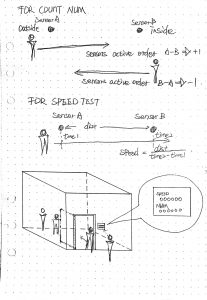 FOR COUNT NUM
Sensor A
Outside
Sensor B
inside
sensors active order A-B => +1
sensors active order B-A => -1
FOR SPEED TEST
Sensor A
Sensor B
dist
time1
time2
speed = dist / time2 - time1
SPEED
NUM